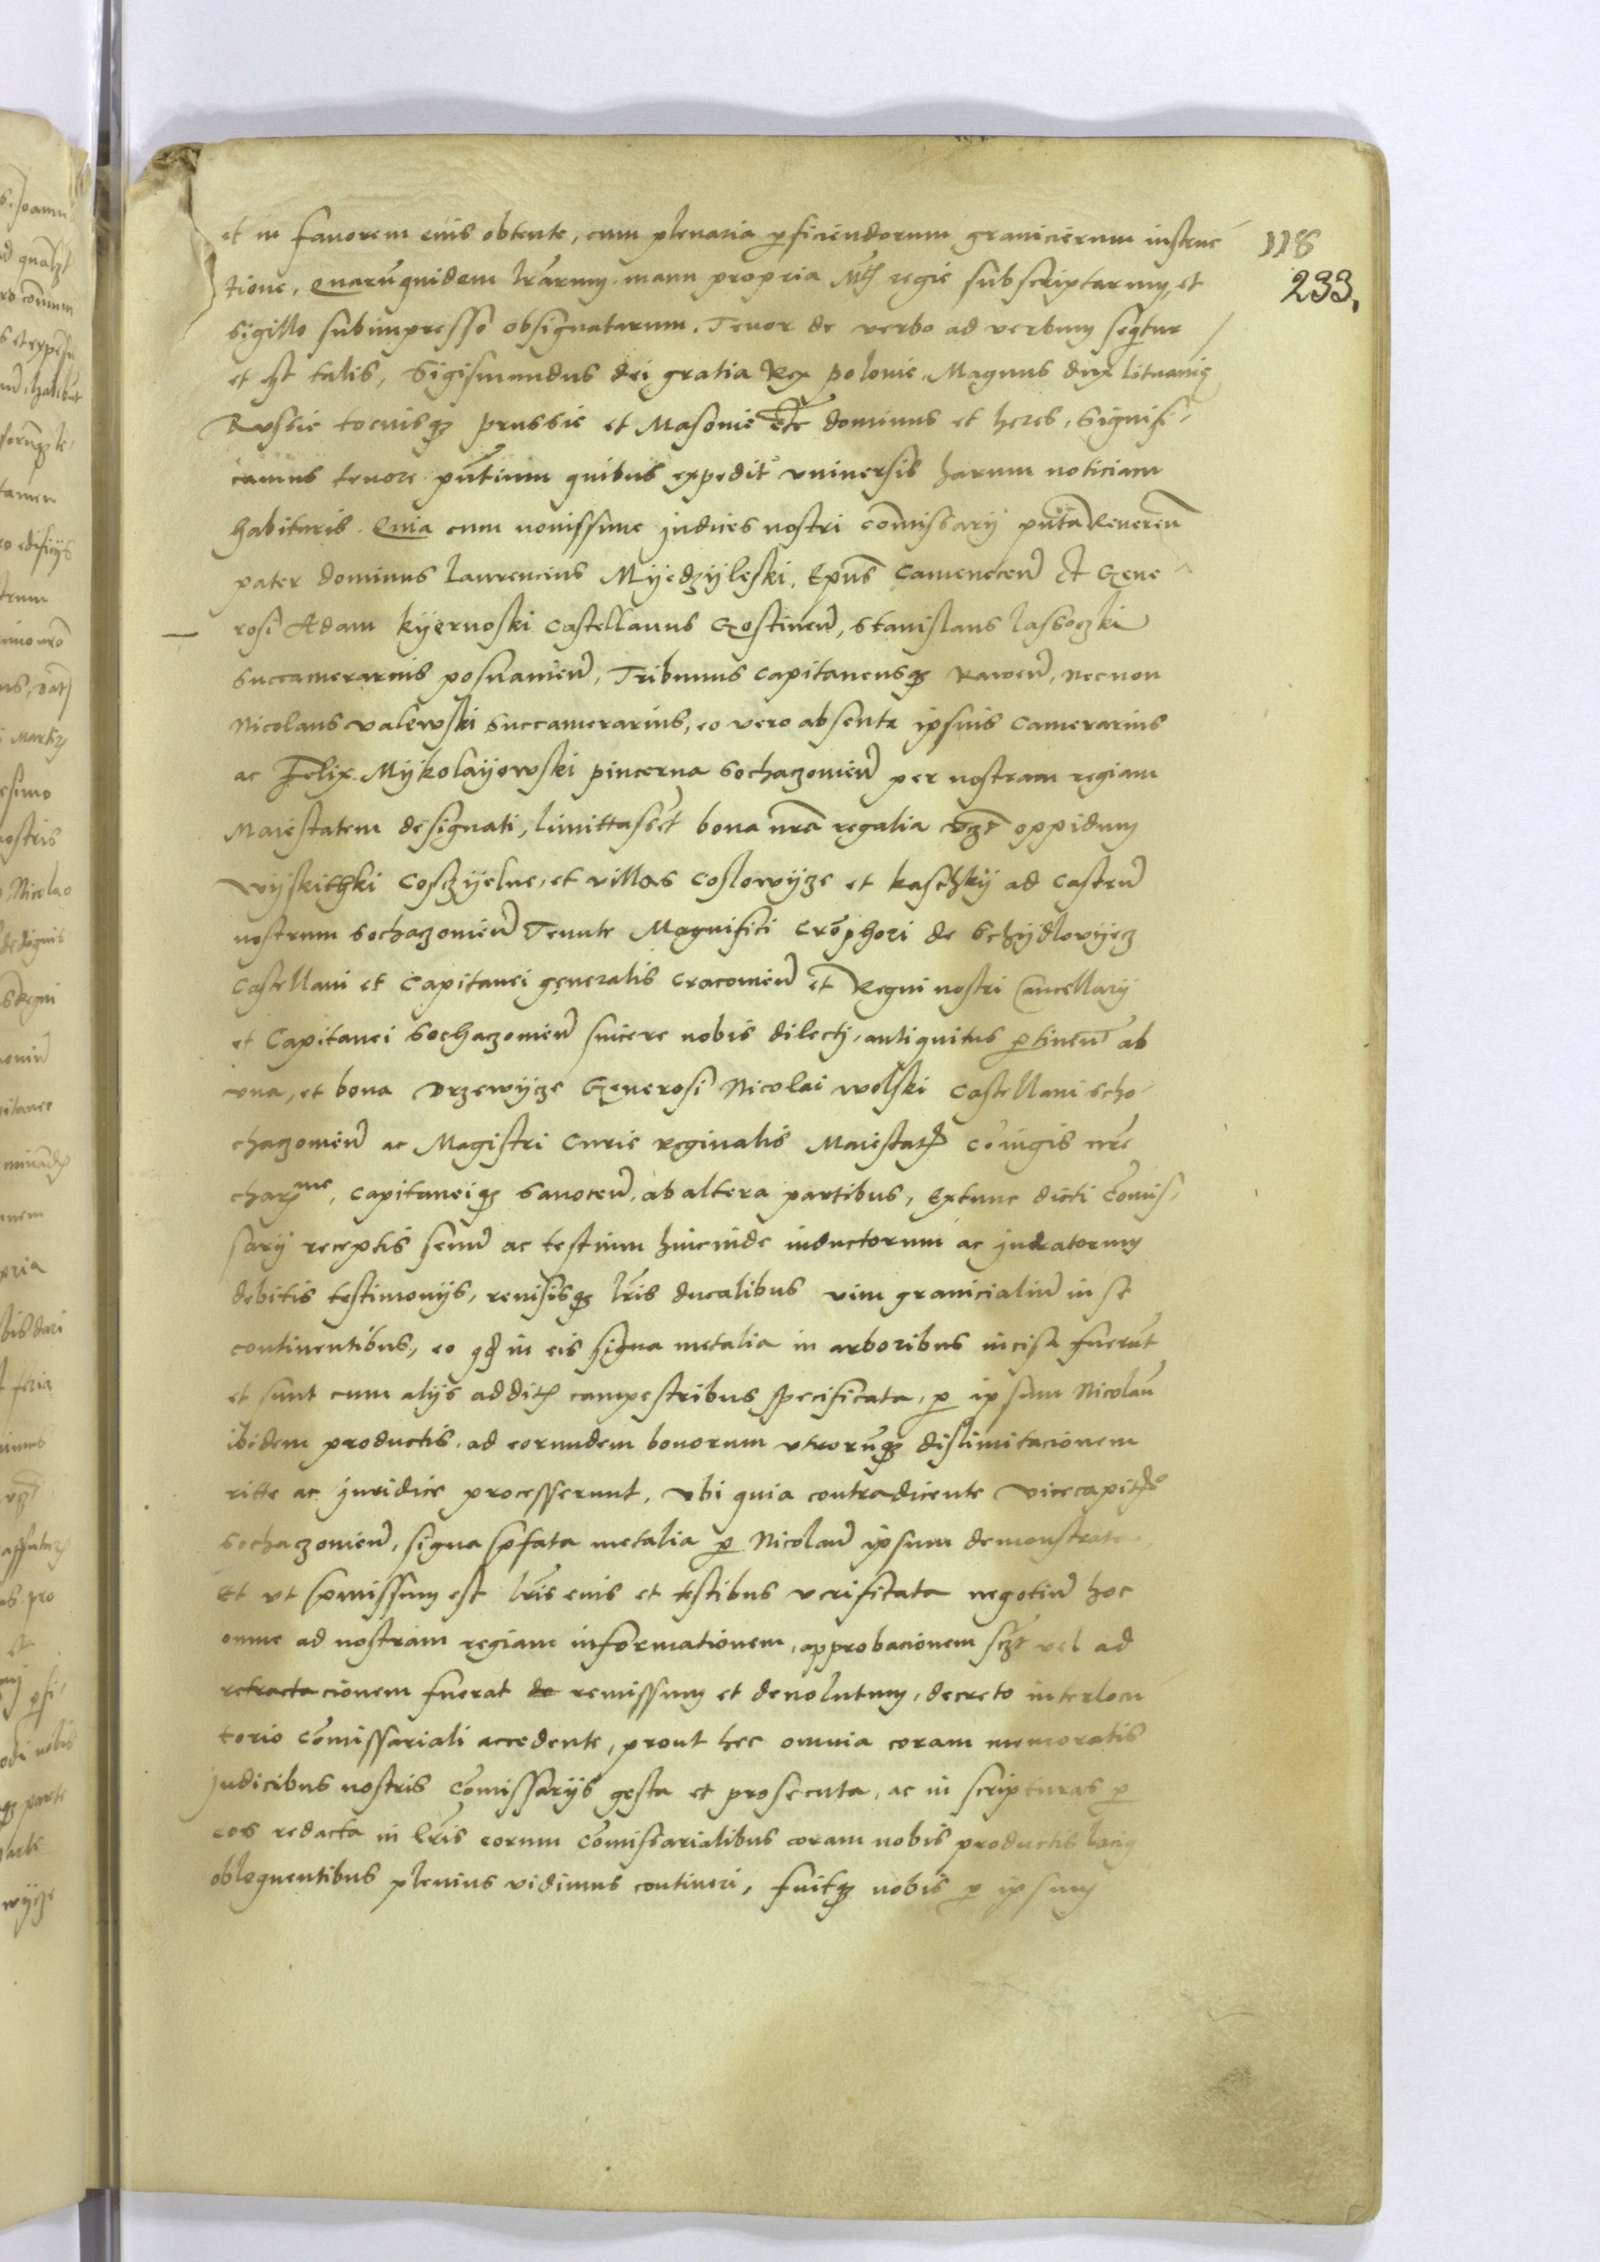 et in favorem eius obtente, cum plenaria p̱ficiendorum granicierum instruc
118
tione. Quarūquidem lr̄arum manu propria Mt̄is regie subscriptarum, et
233.
sigillo subimpresso obsignatarum. Tenor de verbo ad verbum seq̄tur
et est talis, Sigismundus dei gratia Rex polonie Magnus dux lituanię
Russie tociusq̨ prussie et Masouie etc̄ dominus et heres, Signifi-
camus tenore pn̄tium quibus expedit vniuersis harum noticiam
habituris. Quia cum nouissime judices nostri com̄issarij Reueren̄
pater dominus laurencius Myedzyleski, Epūs Camenecen̄ Et Gene
rosi Adam kyernoski Castellanus Gostinen̄, Stanislaus lassoczki
succamerarius posnanien̄, Tribunus capitaneusq̨ Rawen̄, necnon
Nicolaus valewski succamerarius, eo vero absente ipsius camerarius
ac Felix Mykolayewski pincerna Sochaczouien̄ per nostram regiam
Maiestatem designati, limittassēt bona nr̄a regalia vcz̄t oppidum
wyskithki Cosczyelne, et villas Coslowycze et kaschky ad castru̅
nostrum Sochaczouien̄ Tenute Magnifici Cr̄ophori de Schydlowyecz
Castellani et Capitanei generalis Cracouien̄ et Regni nostri Cancellarij
et Capitanei Sochaczouien̄ sincere nobis dilecti, antiquitus p̱tinen̄ ab
vna, et bona Drzewycze Generosi Nicolai wolski Castellani scho-
chaczouien̄ ac Magistri Curie reginalis Maiestatis cōiugis nr̄e
charme, capitaneiq̨ Sanocen̄, ab altera partibus, Extunc dicti Com̄is-
sarij receptis senu̅ ac testium hincinde inductorum ac juratorum
debitis testimonijs, reuisisq̨ lr̄is ducalibus vim granicialiu̅ in se
continentibus, eo q̱d in eis signa metalia in arboribus incisa fuerūt
et sunt cum alijs additis campestribus specificata, p̱ ipsum Nicolau̅
ibidem productis, ad eorundem bonorum vtrorūq̨ dislimitacionem
ritte ac juridice processerunt, vbi quia contradicente vicecapit°
Sochaczouien̄, signa p̄fata metalia p̱ Nicolau̅ ipsum demonstrata
Et vt p̄missum est lr̄is eius et testibus verificata negotiu̅ hoc
omne ad nostram regiam informationem, approbacionem scz̄t vel ad
retractacionem fuerat de remissum et deuolutum, decreto interlocu
torio Com̄issariali accedente, prout hec omnia coram memoratis
judicibus nostris Com̄issarijs gesta et prosecuta, ac in scripturas p̱
eos redacta in lr̄is eorum Com̄issarialibus coram nobis productis
obloquentibus plenius vidimus contineri, fuitq̨ nobis p̱ ipsum